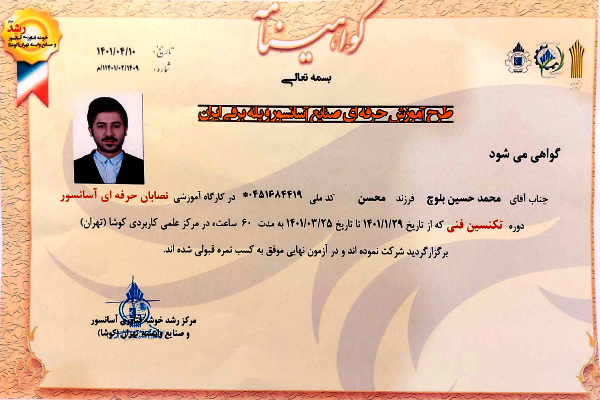 گواهینامه
رشد
خوشه فناوری آسانسور
و صنایع وابسته تهران(کوشا)
تاریخ: ۱۴۰۱/۰۴/۱۰
شماره: ۱۱۴۰۱/۰۲/۱۴۰۹/م
بسمه تعالی
طرح آموزش حرفه ای صنایع آسانسور و پله برقی ایران
گواهی می شود
جناب آقای محمد حسین بلوچ فرزند محسن کد ملی ۰۴۵۱۶۸۴۴۱۹* در کارگاه آموزشی نصابان حرفه ای آسانسور
دوره تکنسین فنی که از تاریخ ۱۴۰۱/۱/۲۹ تا تاریخ ۱۴۰۱/۰۳/۲۵ به مدت ۶۰ ساعت، در مرکز علمی کاربردی کوشا (تهران)
برگزارگردید شرکت نموده اند و در آزمون نهایی موفق به کسب نمره قبولی شده اند.
مرکز رشد خوشه فناوری آسانسور
و صنایع وابسته تهران (کوشا)